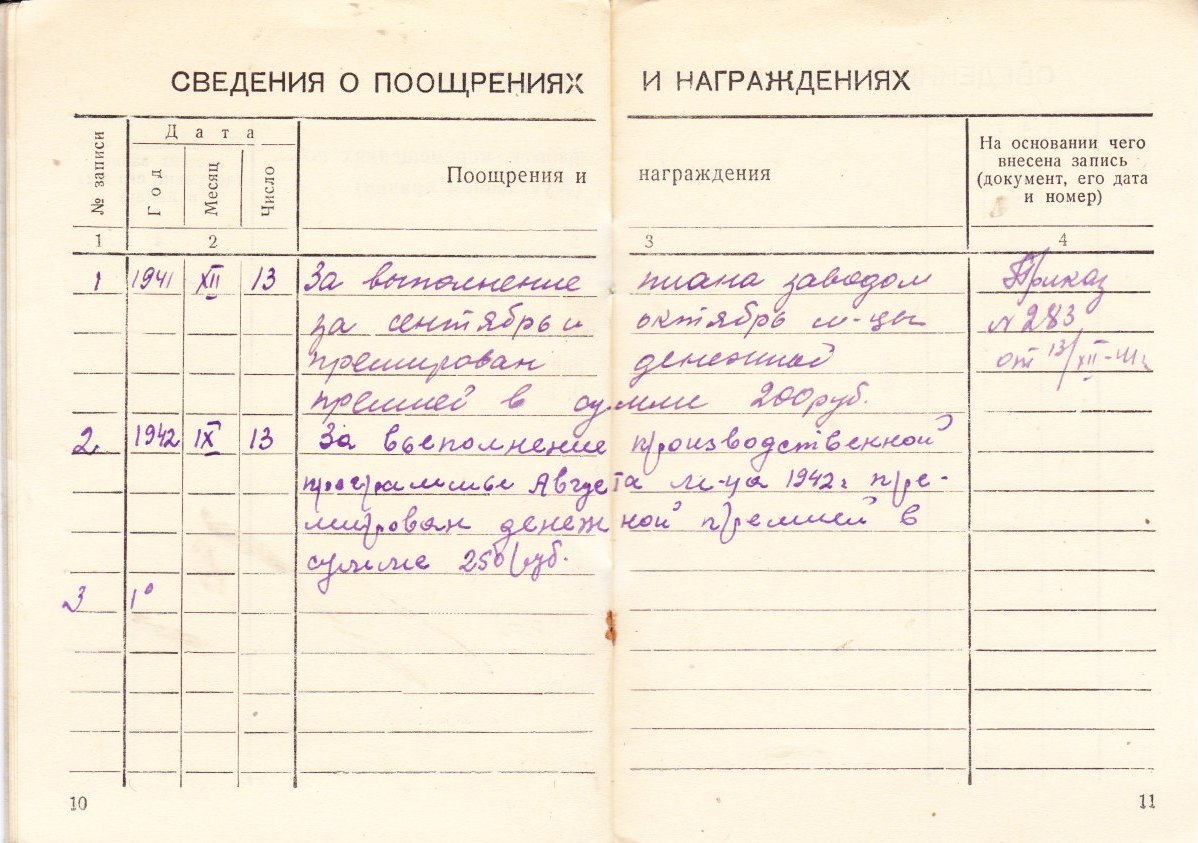 СВЕДЕНИЯ О ПООЩРЕНИЯХ И НАГРАЖДЕНИЯХ
№ записи
Дата
Год
Месяц
Число
Поощрения и награждения
На основании чего
внесена запись
(документ, его дата
и номер)
1 2 3 4
1 1941 XII 13 За выполнение плана заводом Приказ
за сентябрь и октябрь м-цы № 283
премирован денежной от 13/XII-41г.
премией в сумме 200 руб.
2. 1942 IX 13 За выполнение производственной
программы Августа м-ца 1942г. пре-
мирован денежной премией в
сумме 250 руб.
3 1
10
11